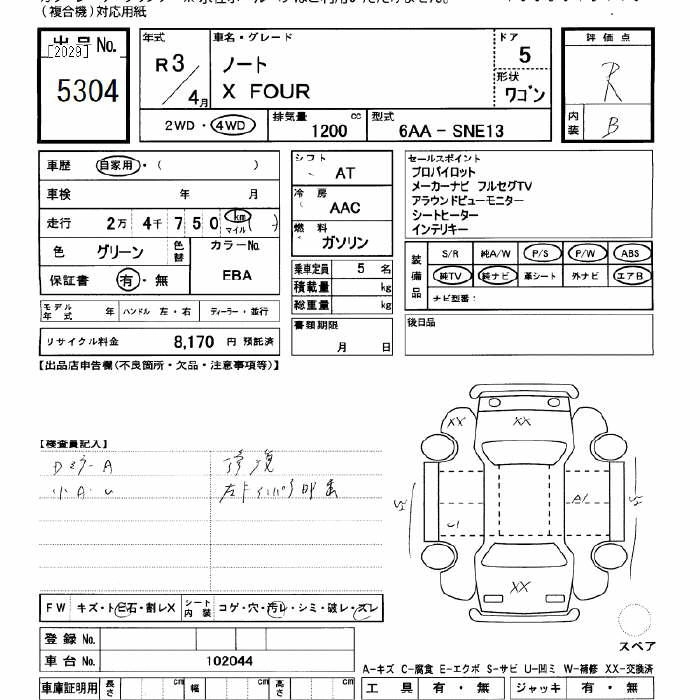 (複合機)対応用紙
出品 No.
[2029]
5304
年式
R3/4月
車名・グレード
ノート
X FOUR
ドア
5
形状
ワゴン
評価点
R
内装
B
2WD・4WD
排気量
cc
1200
型式
6AA - SNE13
車歴 自家用・( )
車検 年 月
走行 2万 4千 7 5 0 km マイル ( )
色 グリーン 色替 カラーNo.
EBA
保証書 有・無
モデル年式 年 ハンドル 左・右 ディーラー・並行
リサイクル料金 8,170 円 預託済
シフト
AT
冷房
AAC
燃料
ガソリン
乗車定員 5 名
積載量 kg
総重量 kg
書類期限
月 日
セールスポイント
プロパイロット
メーカーナビ フルセグTV
アラウンドビューモニター
シートヒーター
インテリキー
装備品
S/R 純A/W P/S P/W ABS
純TV 純ナビ 革シート 外ナビ エアB
ナビ型番:
後日品
【出品店申告欄(不良箇所・欠品・注意事項等)】
【検査員記入】
小A・U
XX
XX
A1
U1
XX
FW キズ・トビ石・割レX シート内装 コゲ・穴・汚レ・シミ・破レ・スレ
登録 No.
車台 No. 102044
スペア
A-キズ C-腐食 E-エクボ S-サビ U-凹ミ W-補修 XX-交換済
車庫証明用 長さ cm 幅 cm 高さ cm
工具 有・無 ジャッキ 有・無